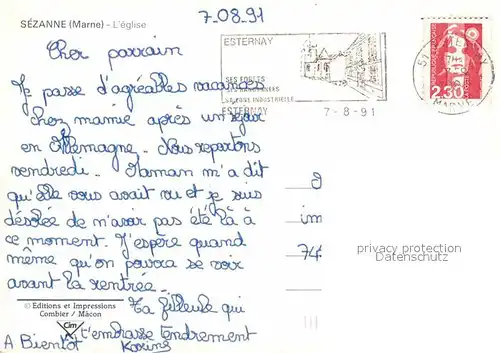 SÉZANNE (Marne) - L'église
7.08.91
ESTERNAY
SES FORÊTS
SA ZONE INDUSTRIELLE
ESTERNAY
7-8-91
51
MARNE
2,30
Cher parrain
Je passe d'agréables vacances
chez mamie après un séjour
en Allemagne. Nous repartons
vendredi. Maman m'a dit
qu'elle vous avait vu et je suis
désolée de n'avoir pas été là à
ce moment. J'espère quand
même qu'on pourra se voir
avant la rentrée.
im
74
privacy protection
Datenschutz
© Editions et Impressions
Combier / Mâcon
Cim
Ta filleule qui
t'embrasse tendrement
A Bientôt Karine